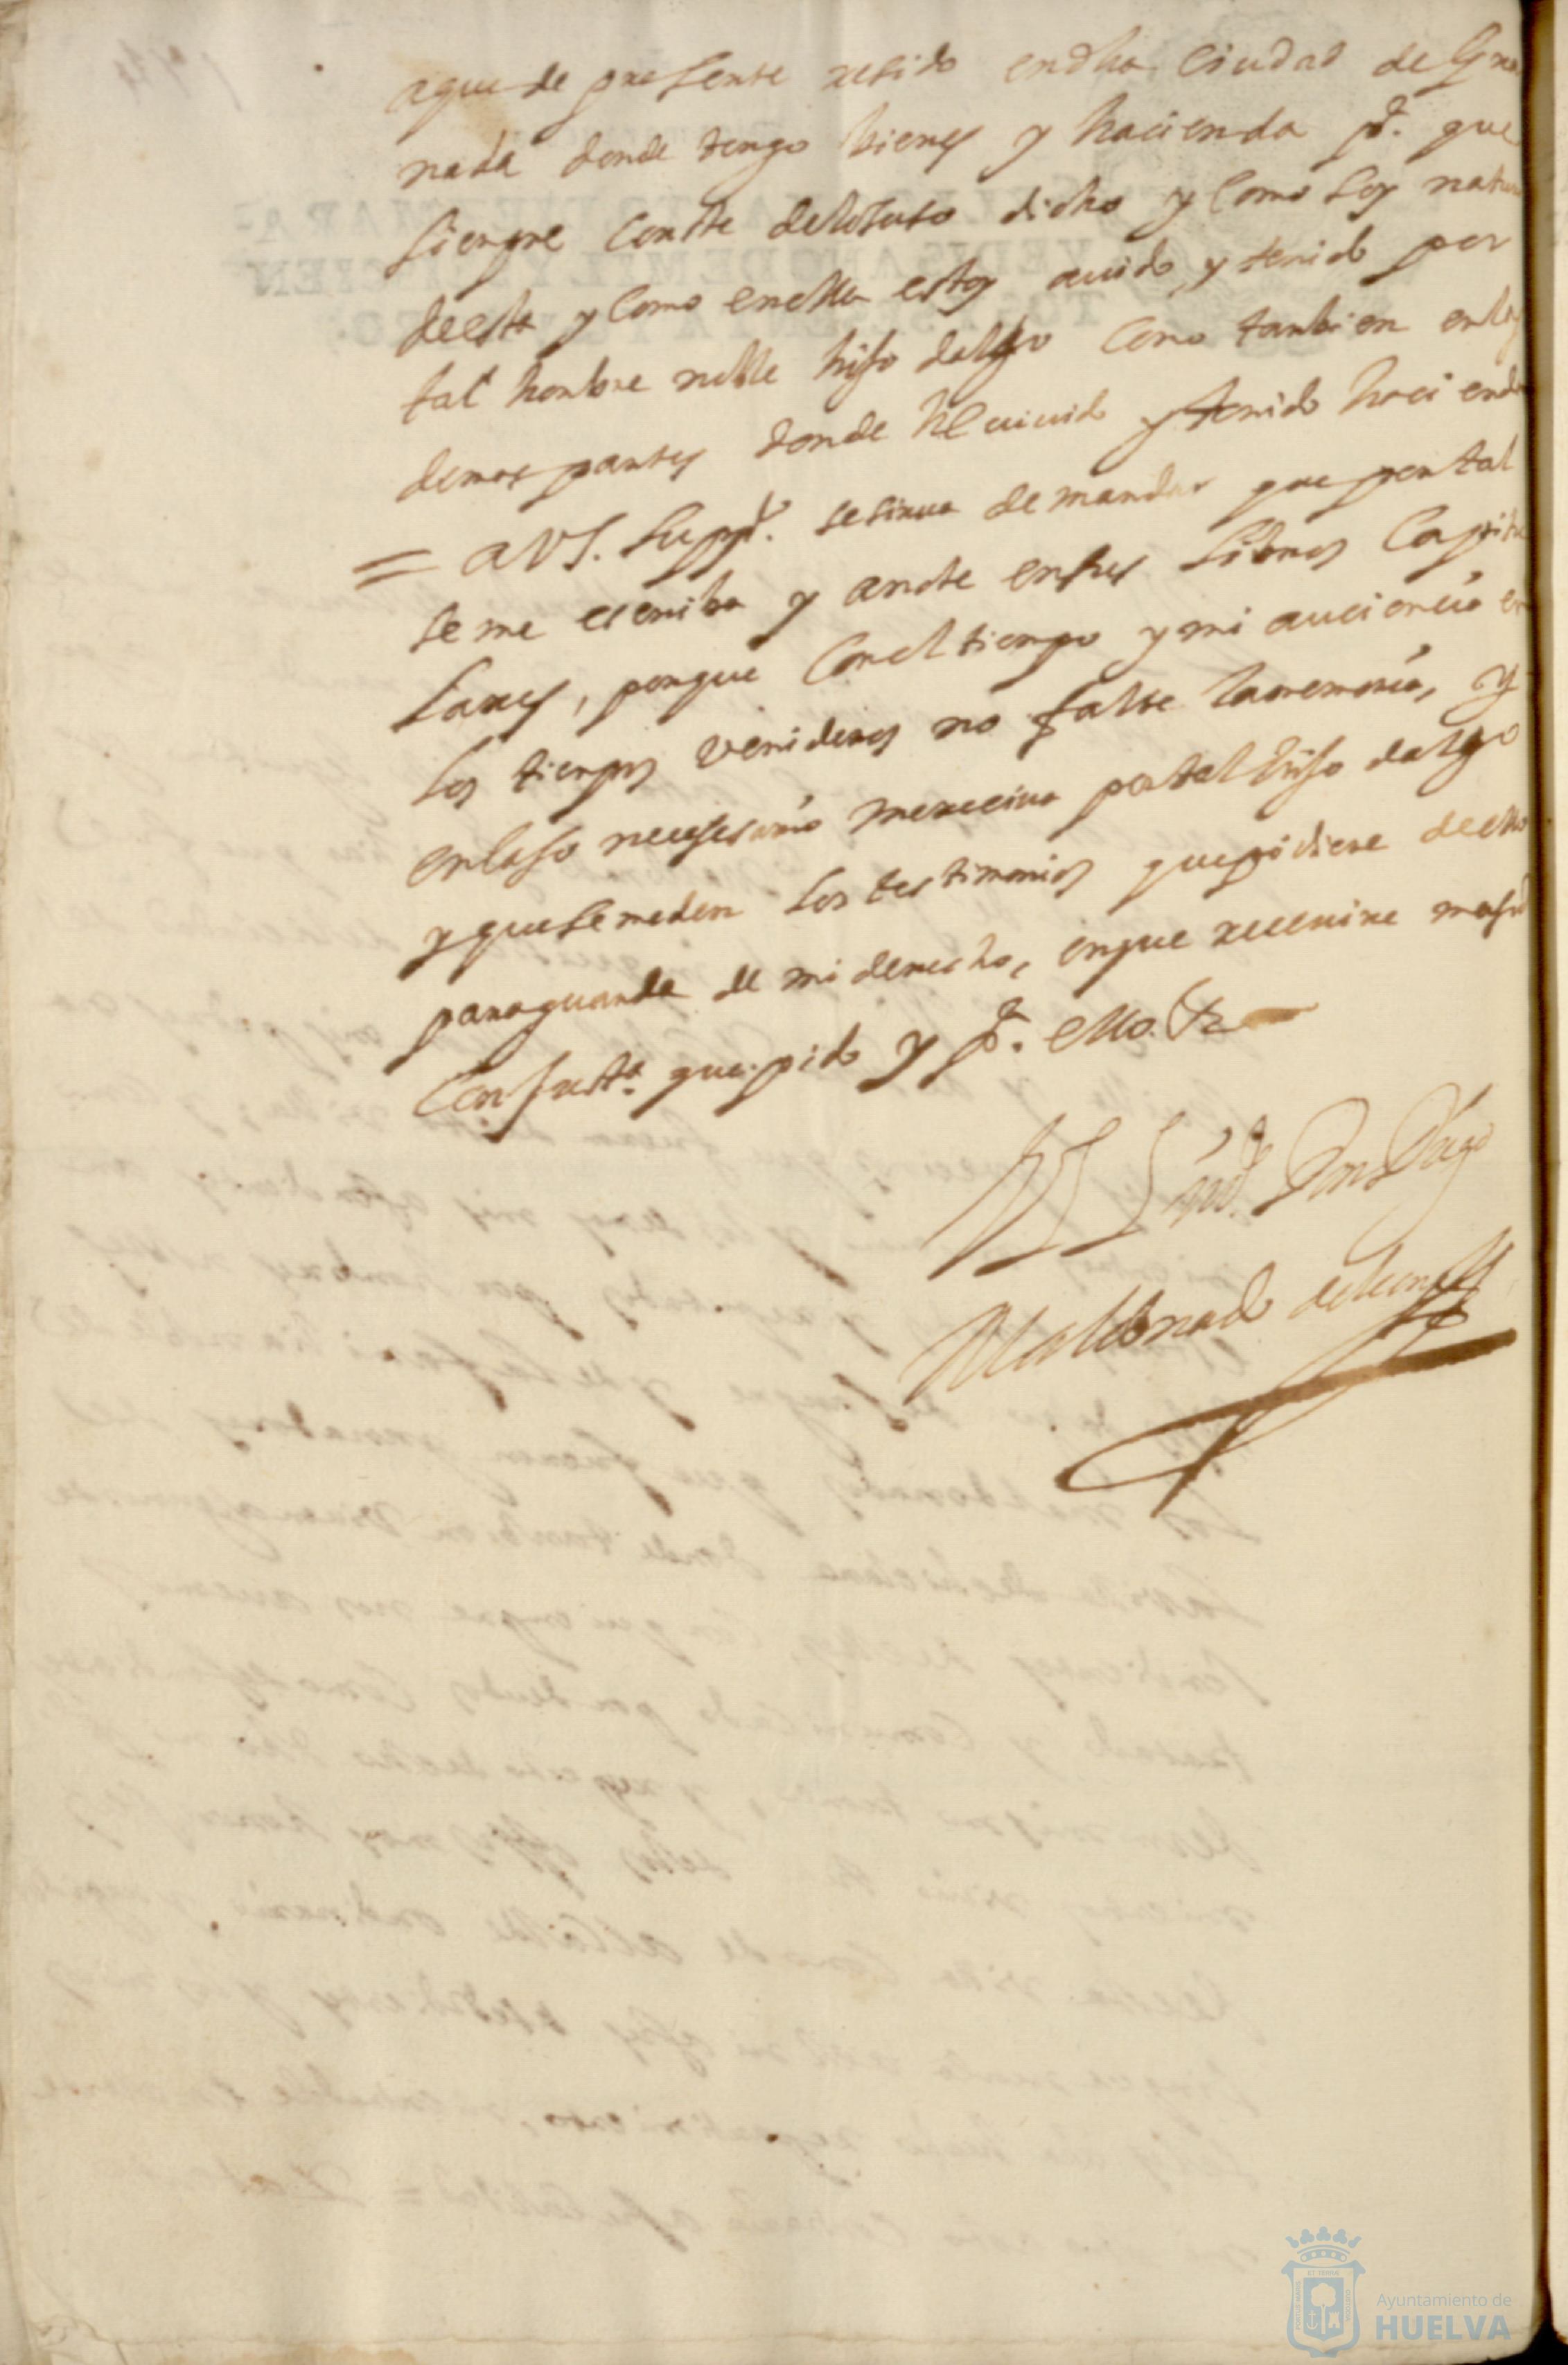 aque de presente resido en dha Ciudad de Gra
nada donde tengo bienes y hacienda pa. que
siempre Conste delo suso dicho y Como soy natu
de esta y Como en ella estoy auido y tenido por
tal hombre noble hijo dalgo Como tambien en las
demas partes donde he viuido y tenido hacienda
= a VS. Suppco. se sirua de mandar que por tal
se me escriba y anote en sus libros Capitu
lares, porque Con el tiempo y mi auciencia en
los tiempos venideros no falte la memoria, y
en Caso necessario mereciua por tal hijo dalgo
y que se me den los testimonios que pidiere de ello
para guarda de mi derecho, en que receuire mrd
Con Justa. que pido y pa. ello. &a
Don Diego
Maldonado de Leon
Ayuntamiento de
HUELVA